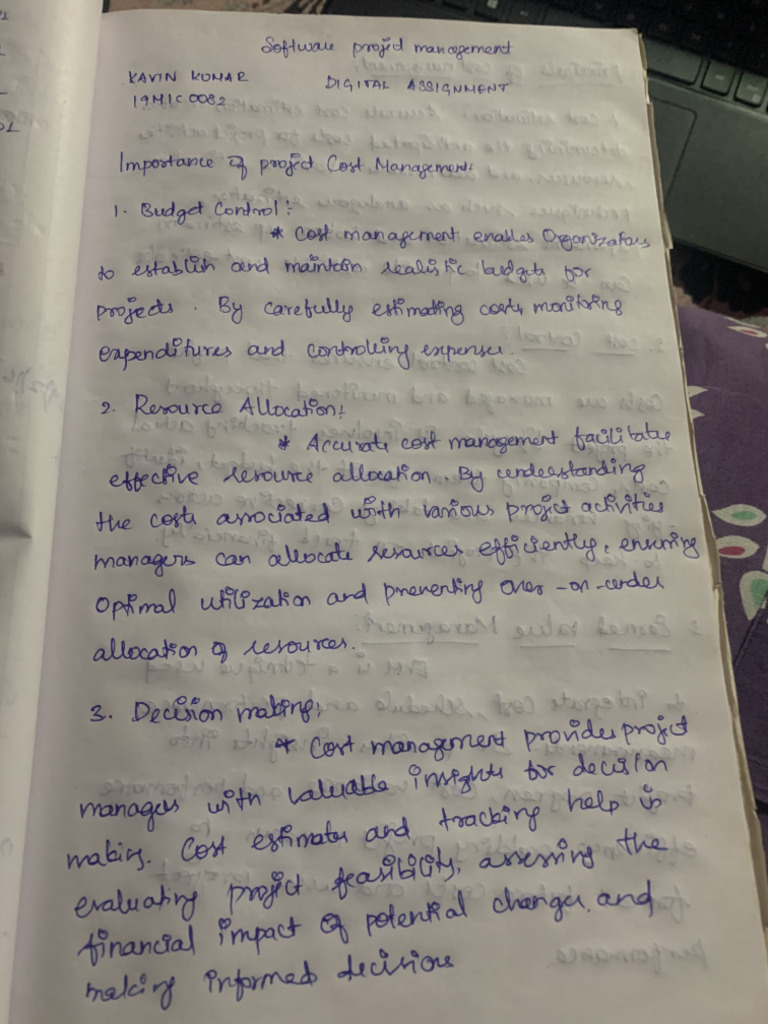 Software project management
KAVIN KUMAR DIGITAL ASSIGNMENT
19MIC0082
Importance of project Cost Management:
1. Budget Control:
* Cost management enables Organizations
to establish and maintain realistic budgets for
projects. By carefully estimating costs, monitoring
expenditures and controlling expenses.
2. Resource Allocation:
* Accurate cost management facilitates
effective resource allocation. By understanding
the costs associated with various project activities
managers can allocate resources efficiently, ensuring
Optimal utilization and preventing over-or-under
allocation of resources.
3. Decision making:
* Cost management provides project
managers with valuable insights for decision
making. Cost estimates and tracking help in
evaluating project feasibility, assessing the
financial impact of potential changes, and
making informed decisions